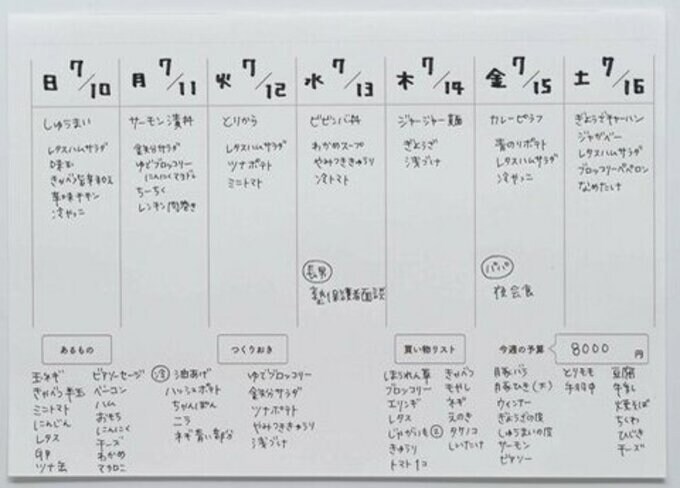 日 7/10
しゅうまい
レタスハムサラダ
味玉
冷やっこ
月 7/11
サーモン漬丼
ゆでブロッコリー
ちーちく
レンチン肉巻き
火 7/12
とりから
レタスハムサラダ
ツナポテト
ミニトマト
水 7/13
ビビンバ丼
わかめスープ
やみつききゅうり
冷トマト
長男
塾保護者面談
木 7/14
ジャージャー麺
ぎょうざ
浅づけ
金 7/15
カレーピラフ
青のりポテト
レタスハムサラダ
冷やっこ
パパ
夜会食
土 7/16
ぎょうざチャーハン
ジャがベー
レタスハムサラダ
ブロッコリーペペロン
なめたけ
あるもの
玉ネギ
きゃべつ半玉
ミニトマト
にんじん
レタス
卵
ツナ缶
ベーコン
ハム
おもち
にんにく
チーズ
わかめ
マカロニ
冷 油あげ
ハッシュポテト
ちゃんぽん
ニラ
ネギ青い部分
つくりおき
ゆでブロッコリー
ツナポテト
やみつききゅうり
浅づけ
買い物リスト
ほうれん草
ブロッコリー
エリンギ
レタス
じゃがいも
きゅうり
トマト1コ
きゃべつ
もやし
ネギ
えのき
タケノコ
しいたけ
今週の予算 8000 円
豚バラ
豚ひき(大)
ウィンナー
ぎょうざの皮
しゅうまいの皮
サーモン
とりもも
豆腐
牛乳
焼そば
ちくわ
ひじき
チーズ